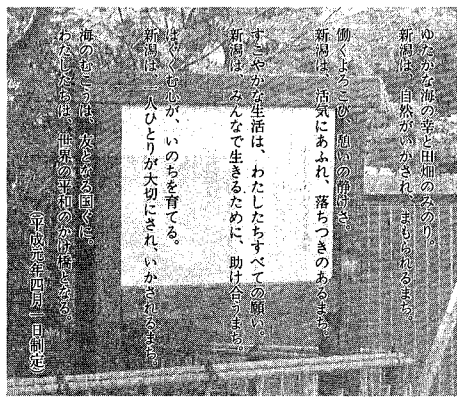 ゆたかな海の幸と田畑のみのり。
新潟は、自然がいかされ、まもられるまち。
働くよろこび、憩いの静けさ。
新潟は、活気にあふれ、落ちつきのあるまち。
すこやかな生活は、わたしたちすべての願い。
新潟は、みんなで生きるために、助け合うまち。
はぐくむ心が、いのちを育てる。
新潟は、一人ひとりが大切にされ、いかされるまち。
海のむこうは、友となる国ぐに。
わたしたちは、世界の平和のかけ橋となる。
（平成元年四月一日制定）